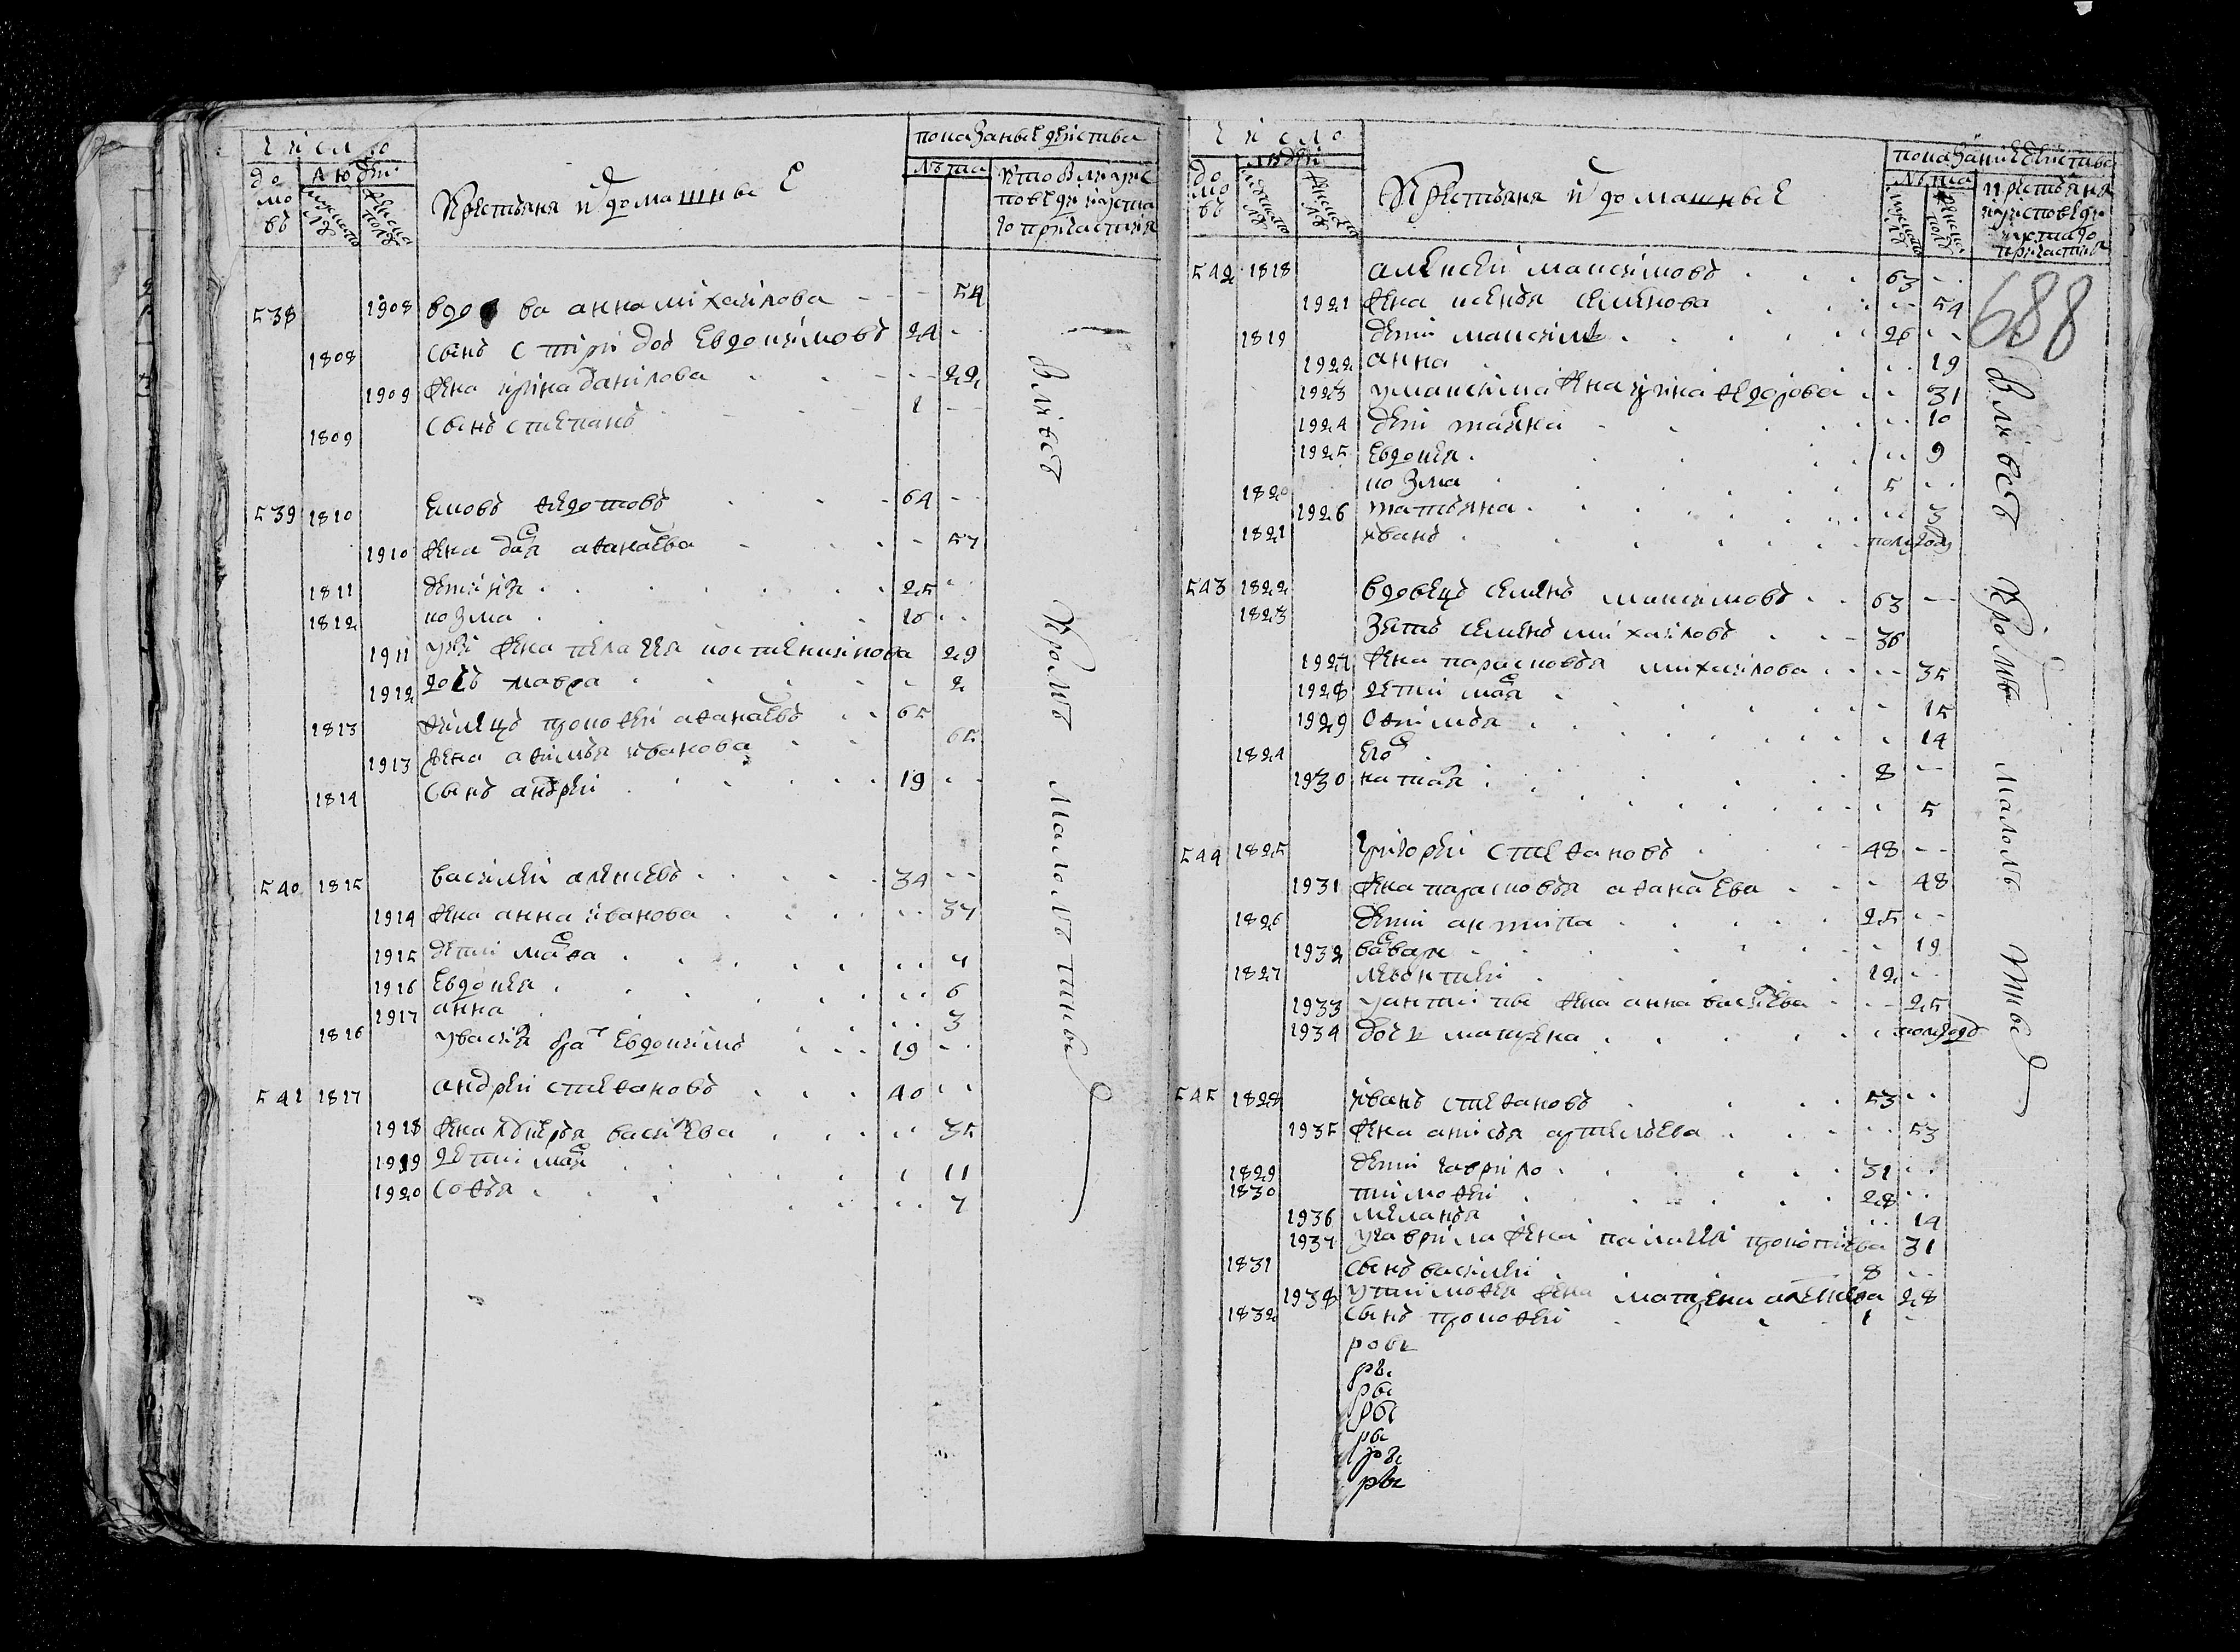 число
показаные действа
домовъ
людей
мужеска полу
женска полу
Крестьяня и домашные
лѣта
кто былъ у исповеди и у святаго причастия
538 1908 вдова анна михаилова 54
1808 сынъ спиридонъ евдокимовъ 24
1909 жена ирина данилова 22
1809 сынъ степанъ 1
539 1810 федотовъ 64
1910 жена дарья афанасева 57
1811 дети 25
1812 козма 16
1911 жена пелагея костентинова 29
1912 дочь мавра 2
1813 жилецъ прокофеи афанасевъ 65
1913 жена афимья иванова 65
1814 сынъ андреи 19
540 1815 василеи алексевъ 34
1914 жена анна иванова 37
1915 дети марфа 7
1916 евдокея 6
1917 анна 3
1816 у василья братъ евдокимъ 19
541 1817 андреи стефановъ 40
1918 жена лукерья василева 35
1919 дети марья 11
1920 софья 7
были кроме малолетных
число
показание действа
домовъ
людей
Крестьяня и домашные
лѣта
688
542 1818 алексеи максимовъ 63
1921 жена ксенья семенова 54
1819 дети максимъ 26
1922 анна 19
1923 у максима жена ирина федорова 31
1924 дети татьяна 10
1925 евдокея 9
1820 козма 5
1926 татьяна 3
1821 иванъ полугоду
543 1822 вдовецъ семенъ максимовъ 63
1823 зять семенъ михаиловъ 36
1927 жена парасковья михаилова 35
1928 дети марья 15
1929 офимья 14
1824 егоръ 8
1930 наталья 5
544 1825 григореи стефановъ 48
1931 жена парасковья афанасева 48
1826 дети антипа 25
1932 варвара 19
1827 левонтеи 12
1933 у антипы жена анна василева 25
1934 дочь матрена полугоду
545 1828 иванъ стефановъ 53
1935 жена анисья артемьева 53
1829 дети гаврило 31
1830 тимофеи 28
1936 меланья 14
1937 у гаврила жена палагея прокопьева 31
1831 сынъ василеи 8
1938 у тимофея жена матрена алексева 28
1832 сынъ прокофеи 1
были кроме малолетные